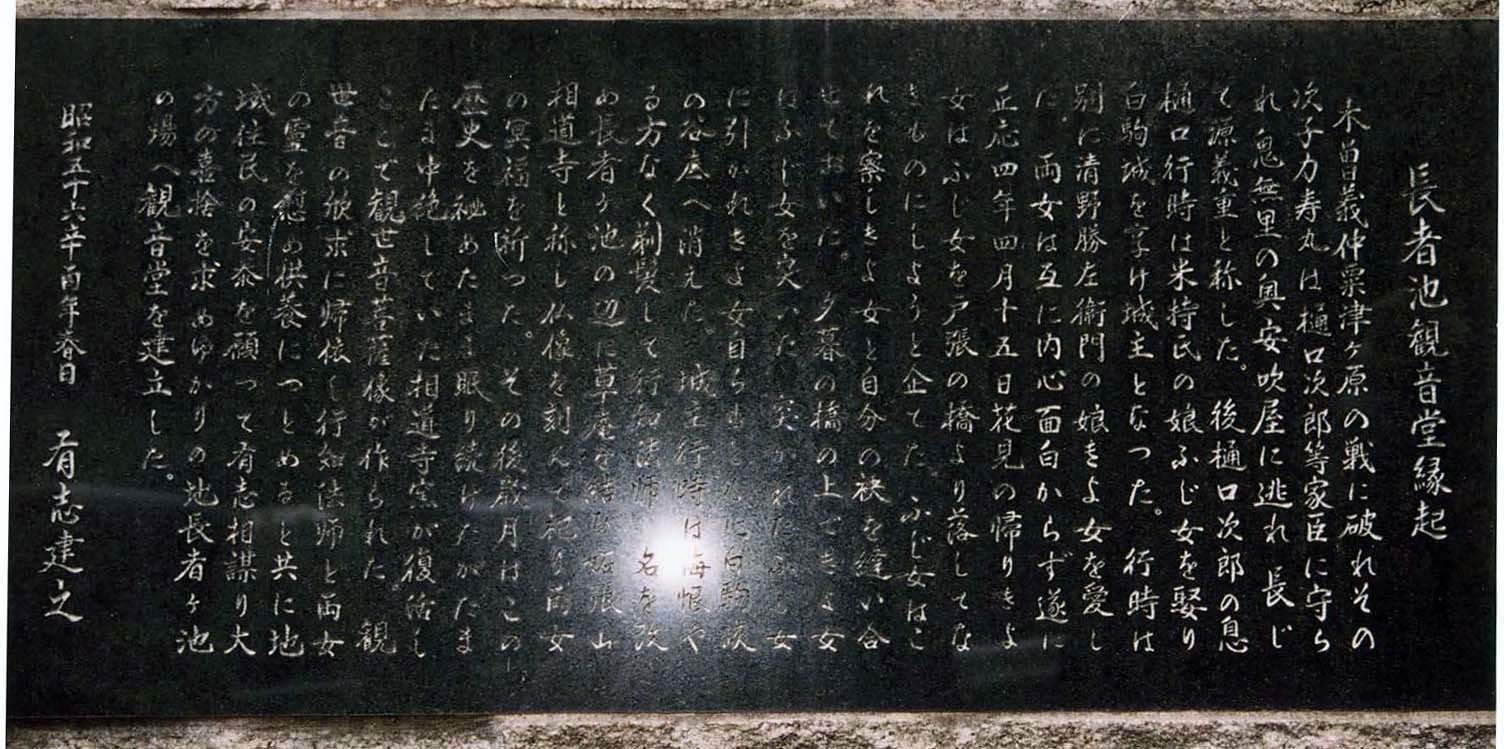 長者池観音堂縁起
木曽義仲粟津ヶ原の戦に破れその
次子力寿丸は樋口次郎等家臣に守ら
れ鬼無里の奥安吹屋に逃れ長じ
て源義重と称した。後樋口次郎の息
樋口行時は米持氏の娘ふじ女を娶り
白駒城を享け城主となつた。行時は
別に清野勝左衛門の娘きよ女を愛し
た。両女は互に内心面白からず遂に
正応四年四月十五日花見の帰りきよ
女はふじ女を戸張の橋より落してな
きものにしようと企てた ふじ女はこ
れを察しきよ女と自分の袂を縫い合
せておいた。夕暮の橋の上できよ女
はふじ女を突いた 突かれたふじ女
に引かれきよ女自らも 白駒
の谷底へ消えた。城主行時は悔恨や
る方なく剃髪して行知法師と名を改
め長者ヶ池の辺に草庵を結び 山
相道寺と称し仏像を刻んで花り両女
の冥福を祈つた。その後歳月はこの
歴史を秘めたまま眠り続けたがたま
たま中絶していた相道寺 が復活し
ここで観世音菩薩像が作られた。観
世音の欣求に帰依し行知法師と両女
の霊を慰め供養につとめると共に地
域住民の安泰を願つて有志相謀り大
方の喜捨を求めゆかりの地長者ヶ池
の場へ観音堂を建立した。
昭和五十六辛酉年春日 有志建之